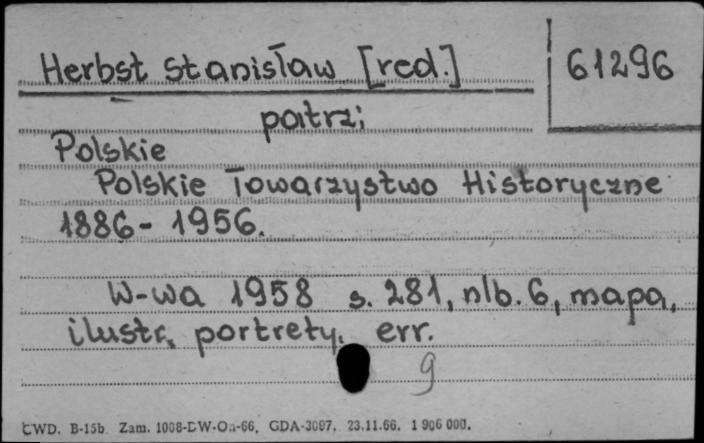 Herbst Stanisław [red.]
61296
patrz:
Polskie
Polskie Towarzystwo Historyczne
1886 - 1956.
W-wa 1958 s. 281, nlb. 6, mapa,
ilustr. portrety. err.
9
CWD. B-15b. Zam. 1008-DW-Oa-66, GDA-3097. 23.11.66. 1 906 000.